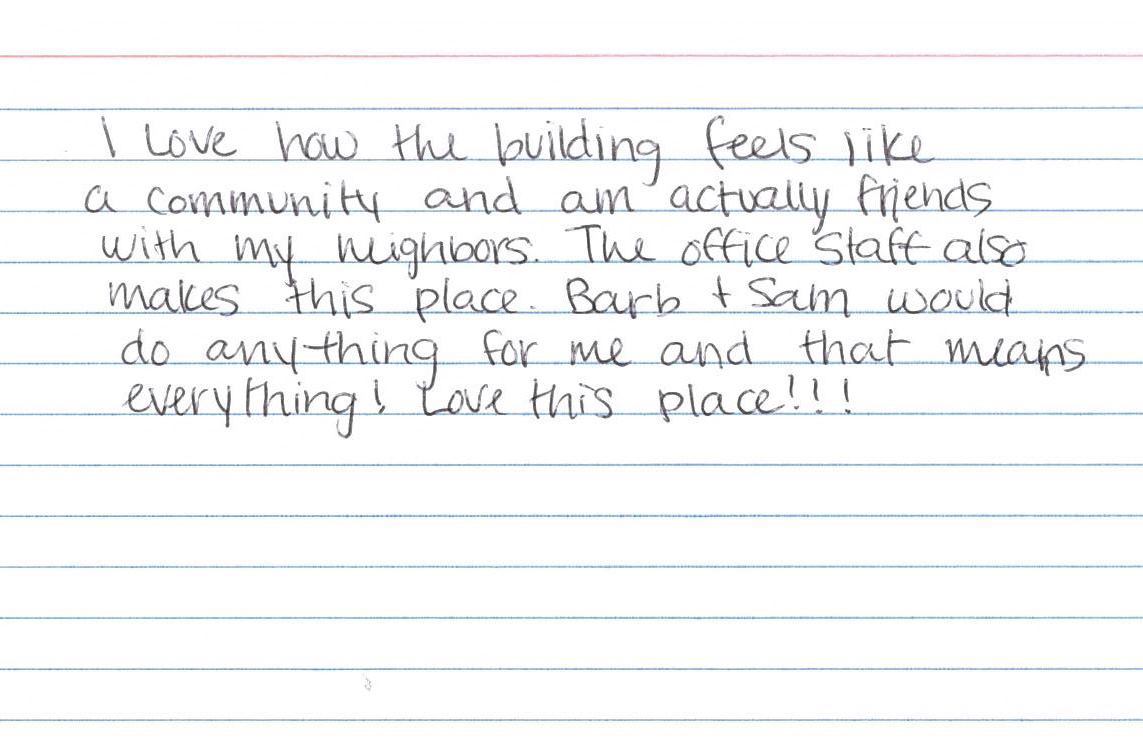 I Love how the building feels like
a community and am actually friends
with my neighbors. The office staff also
makes this place. Barb + Sam would
do anything for me and that means
everything! Love this place!!!